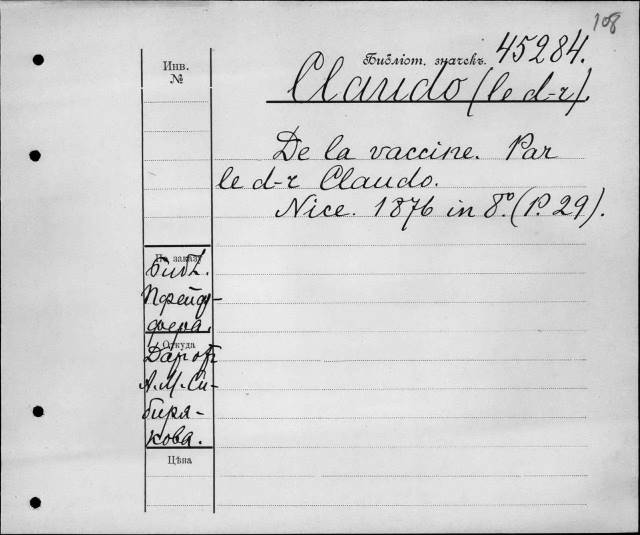 108
Библіот. значекъ. 45284.
Инв.
№
Claudo (le d-r).
De la vaccine. Par
le d-r Claudo.
Nice. 1876 in 8º. (P. 29).
По заказу
Библ.
Пфейф-
фера.
Откуда
Даръ отъ
А. М. Си-
биря-
кова.
Цѣна